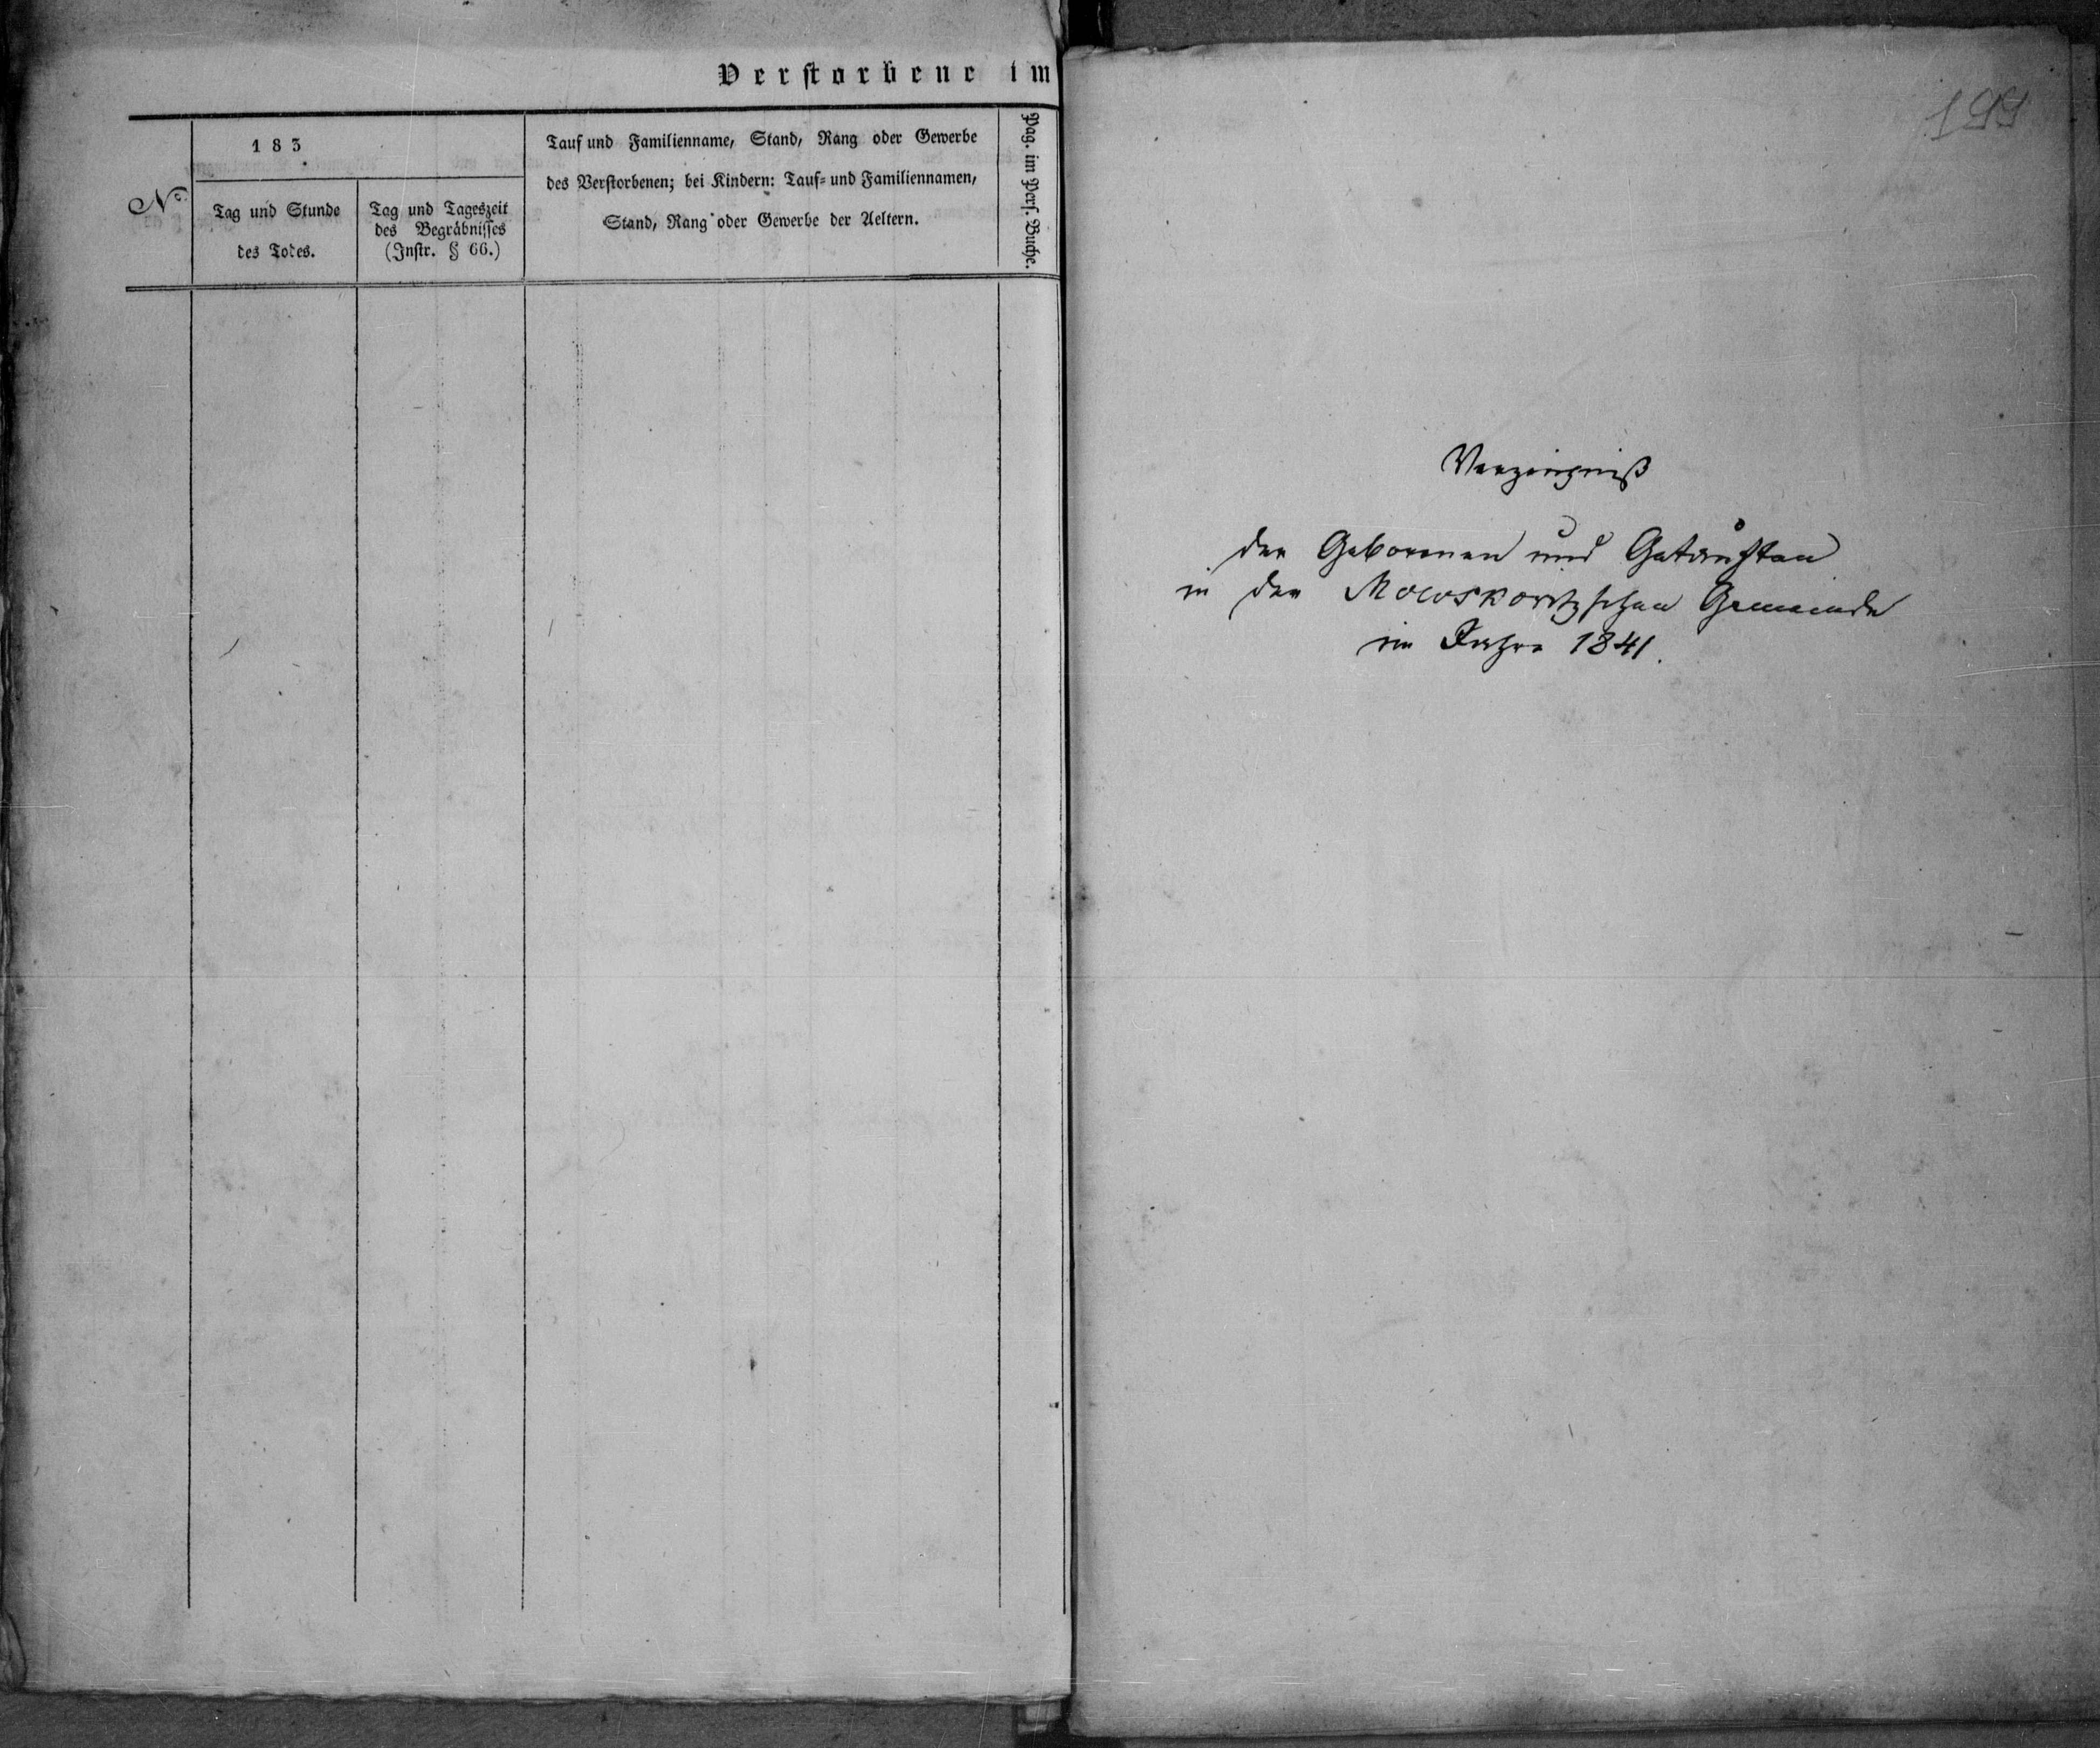 Verstorbene im
No.
183
Tag und Stunde
des Todes.
Tag und Tageszeit
des Begräbnisses
(Instr. § 66.)
Tauf und Familienname, Stand, Rang oder Gewerbe
des Verstorbenen; bei Kindern: Tauf- und Familiennamen,
Stand, Rang oder Gewerbe der Aeltern.
Pag. im Pers. Buche.
199
Verzeichniß
der Geborenen und Getauften
in der Moloskowitzschen Gemeinde
im Jahre 1841.